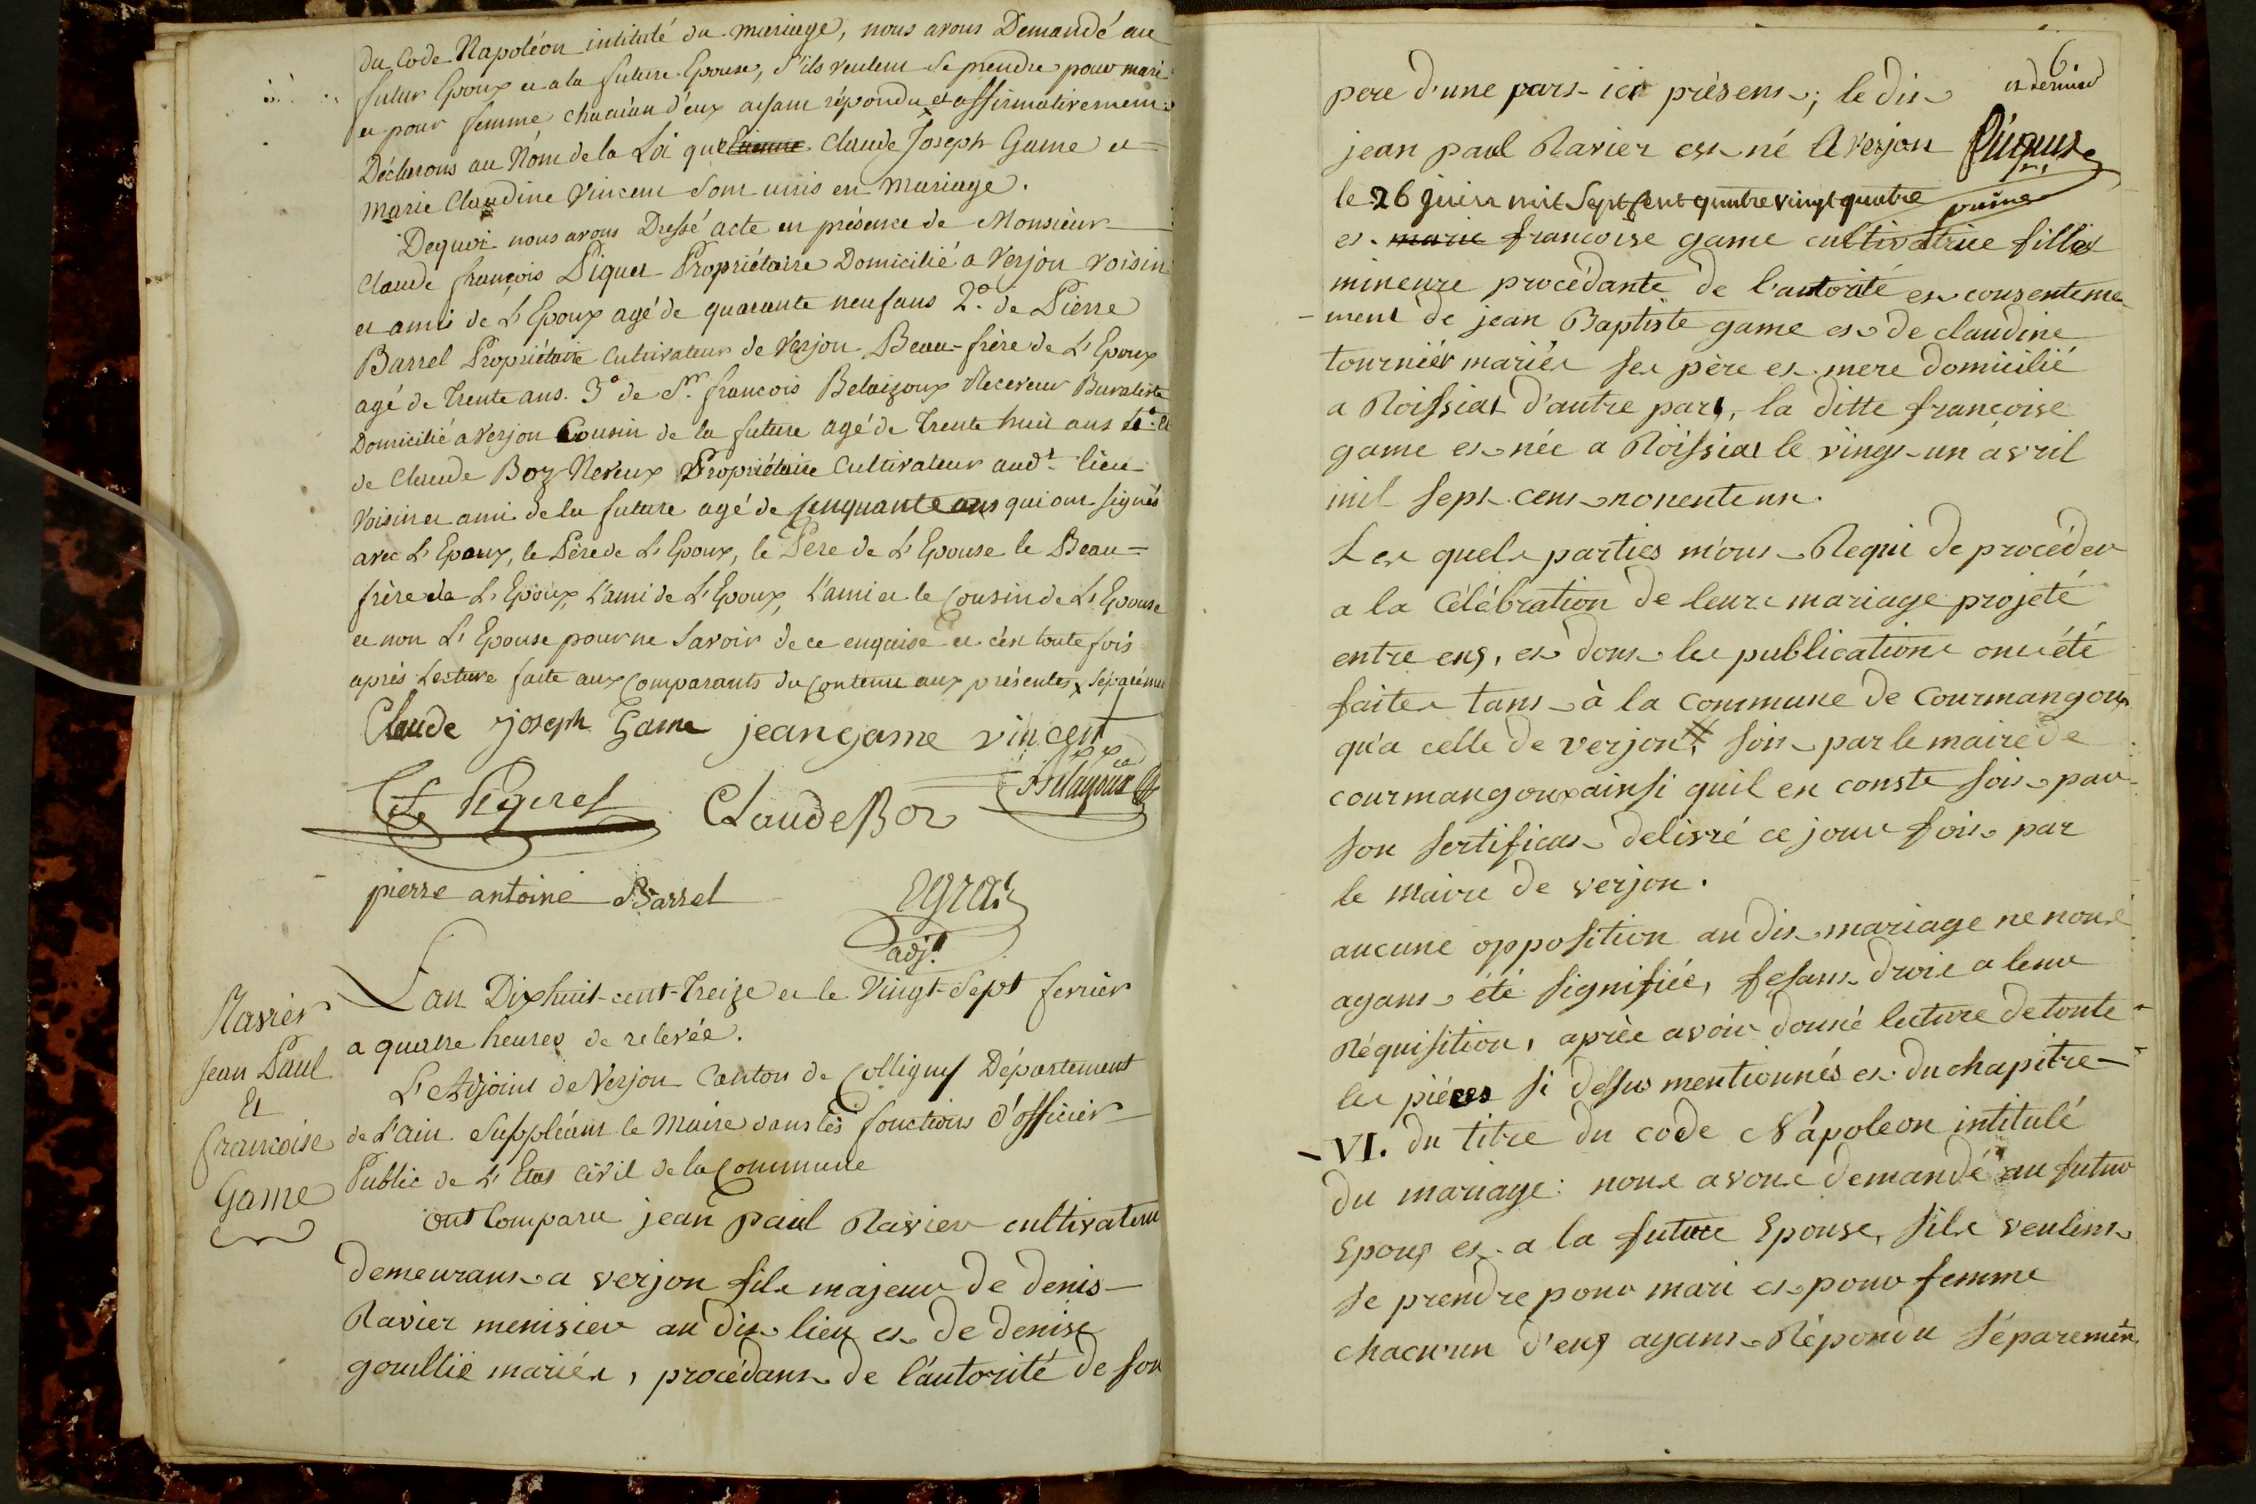 du Code Napoléon intitulé du mariage, nous avons Demandé au
futur Epoux et a la future Epouse, s'ils veulent se prendre pour mari
et pour femme chacun d'eux aÿsant répondu et affirmativement
Déclarons au Nom de la Loi que Etienne Claude Joseph Game et =
Marie Claudine Vincent sont unis en mariage.
Dequoi nous avons Dressé acte en présence de Monsieur
Claude françois Piquet Propriétaire Domicilié a Verjon voisin
et ami de L'Epoux agé de quarante neuf ans 2.° de Pierre
Barrel Propriétaire Cultivateur de Verjon Beau-frère de L'Epoux
agé de trente ans. 3° de Sr. francois Belaizoux Receveur Buraliste
Domicilié a Verjon Cousin de la future agé de trente huit ans 4.° et
de Claude Boz Neveux Propriétaire Cultivateur audt. lieu
Voisin et ami de la future agé de cinquante ans qui ont signés
avec L'Epoux, le Père de L'Epoux, le Père de L'Epouse le Beau =
frère de L'Epoux, L'ami de L'Epoux, L'ami et le Cousin de L'Epouse
et non L'Epouse pour ne Savoir de ce enquise et c'est toute fois
après Lecture faite aux Comparants du Contenu aux présentes x séparément
Claude joseph Game jean game vincent
Piquet Claude Boz
pierre antoine Barrel
adjt.
Ravier
Jean Paul
Et
francoise
Game
L'an Dix huit-cent-treize et le Vingt-Sept fevrier
a quatre heures de relevée.
L'Adjoint de Verjon Canton de Colligny Département
de L'ain Suppléant le Maire dans les fonctions d'officier
Public de L'Etat Civil de la Commune
ont Comparu jean paul Ravier cultivateur
demeurant a verjon fils majeur de denis
Ravier menisier au dit lieu et de denise
gouillié mariés, procédant de l'autorité de son
6
et dernier
pere d'une part ici présent; le dit
jean paul Ravier est né a Verjon
le 26 juin mil Sept Cent quatre vingt quatre
et marie francoise game cultivatrice fille
mineure procédante de l'autorité et consenteme
ment de jean Baptiste game et de claudine
tournier mariés ses père et mere domicilié
a Roissiat d'autre part, la ditte françoise
game est née a Roissiat le vingt-un avril
mil sept cent nonentе un.
Les quels parties m'ont Requi de procéder
a la Célébration de leurs mariage projeté
entre eux, et dont les publications ont été
faites tant à la Commune de Courmangoux
qu'a celle de verjon, soit par le maire de
courmangoux ainsi quil en conste soit par
son sertificat delivré ce jour soit par
le Maire de verjon.
aucune opposition au dit mariage ne nous
ayant été signifiée, fesant droit a leur
Réquisition, après avoir donné lecture de toute
les pièces si dessus mentionnés et du chapitre
VI. du titre du code Napoleon intitulé
du mariage: nous avons demandé au futur
Epoux et a la future Epouse, sils veulent
se prendre pour mari et pour femme
chacun d'eux ayant Répondu séparément